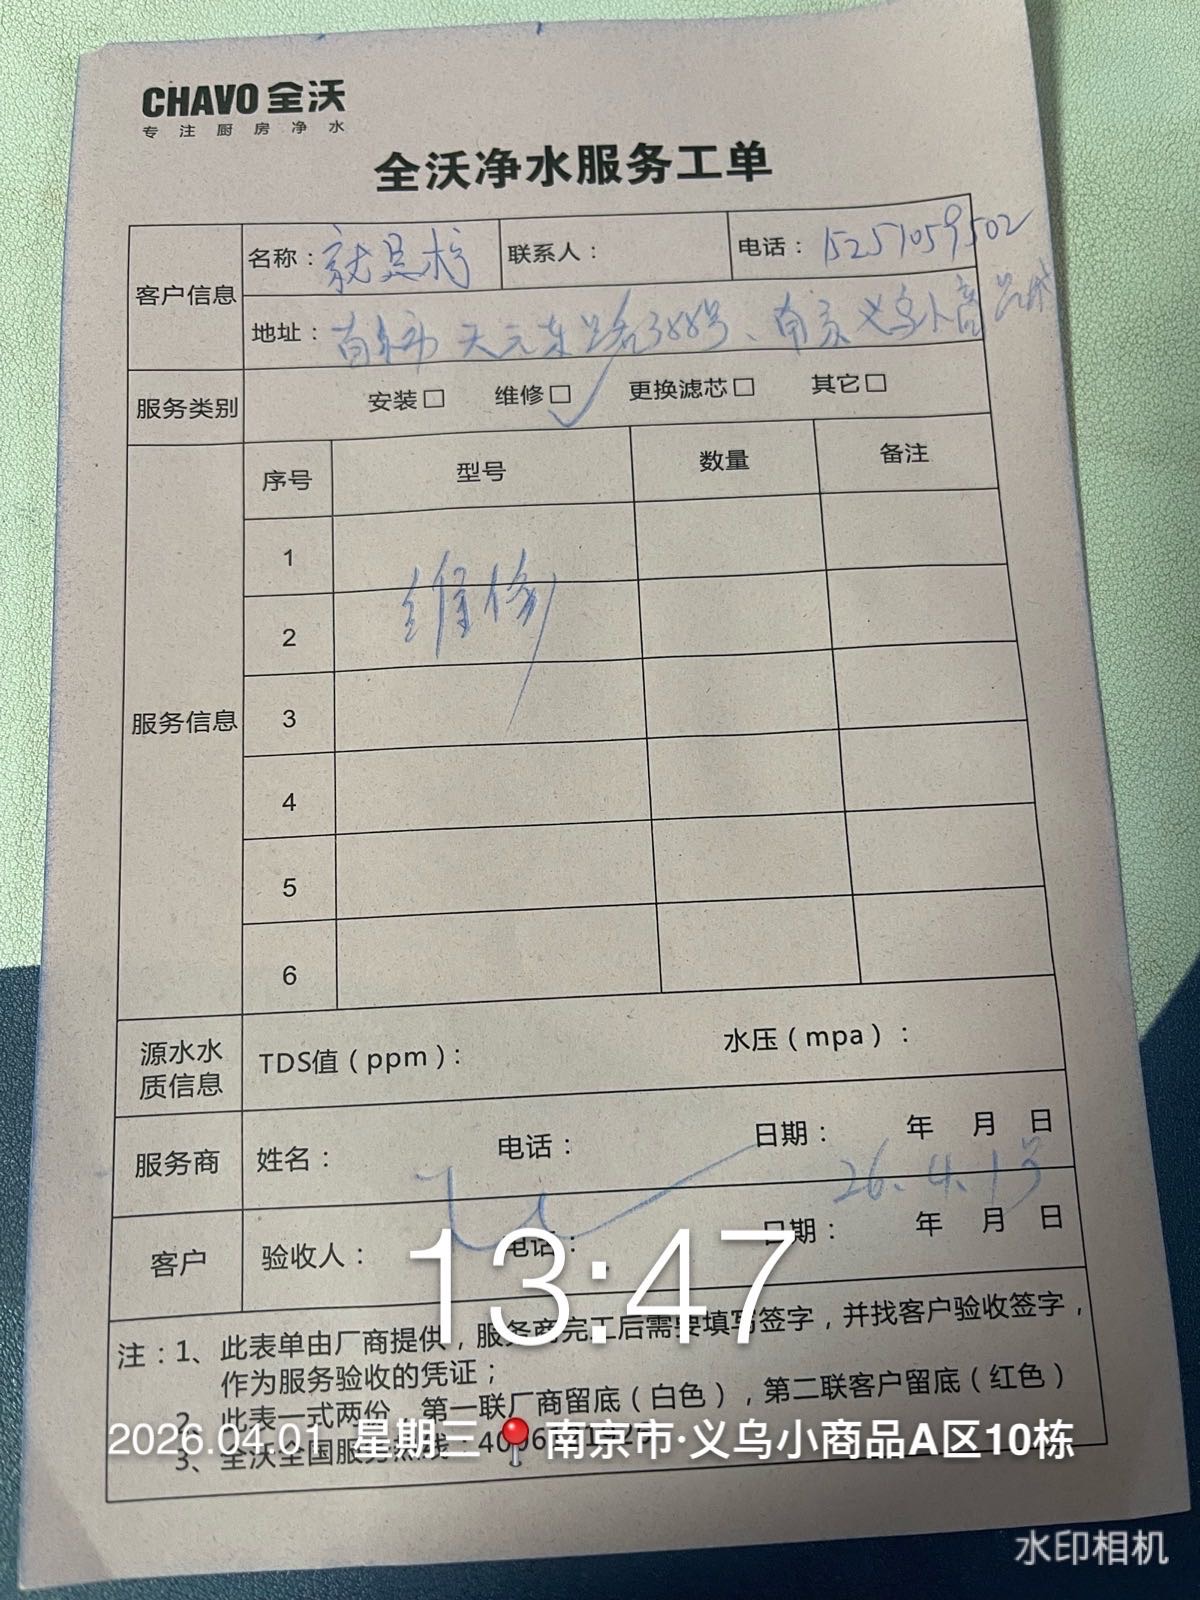 CHAVO 全沃
专注厨房净水
全沃净水服务工单
客户信息
名称：就是村
联系人：
电话：15251059502
地址： 天元东路388号、南京义乌小商品城
服务类别
安装□ 维修□✓ 更换滤芯□ 其它□
服务信息
序号 型号 数量 备注
1
维修
2
3
4
5
6
源水水质信息
TDS值（ppm）： 水压（mpa）：
服务商 姓名： 电话： 日期： 年 月 日
26.4.1号
客户 验收人： 电话： 日期： 年 月 日
13:47
注：1、此表单由厂商提供，服务商完工后需要填写签字，并找客户验收签字，
作为服务验收的凭证；
2、此表一式两份，第一联厂商留底（白色），第二联客户留底（红色）
3、全沃全国服务热线：
2026.04.01 星期三 📍南京市·义乌小商品A区10栋
水印相机